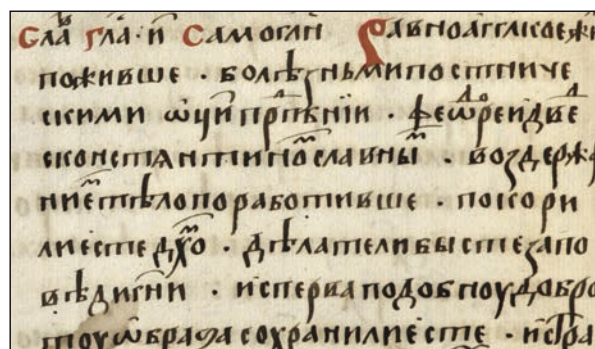 Сла́в гла҃ и҃ Самогл҃н Равноагг҃лское жи
поживше · болѣзньми постниче
скими ѿци прⷣпбнїи · феѡⷣре и дв҃е
с константиноⷨ славныⷨ · воздержа
ниеⷨ тѣло поработивше · покори
ли есте дх҃ⷡо · дѣлатели бысте запо
вѣди гн҃и · и сперва подобноую добро
тоу ѡбраза сохранили есте · и стра